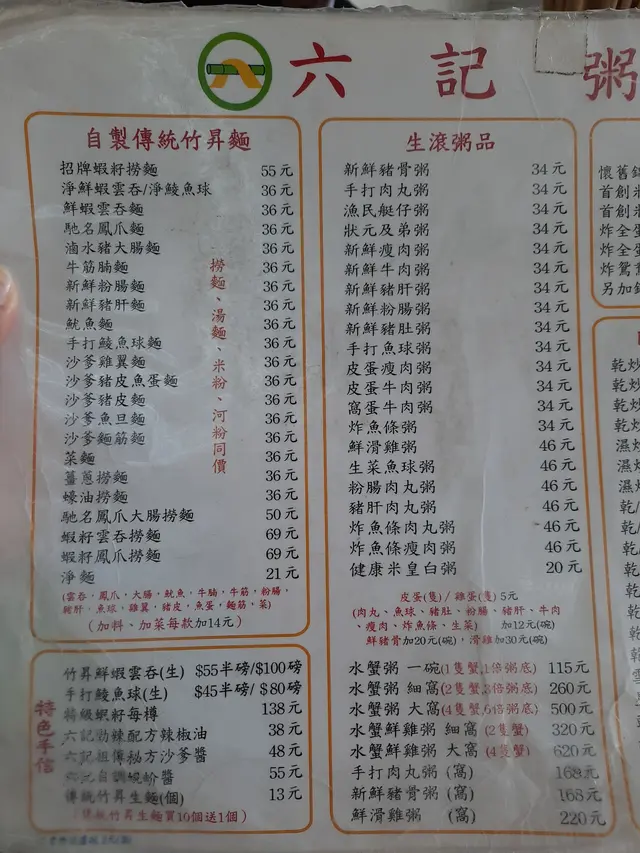 六記粥
自製傳統竹昇麵
招牌蝦籽撈麵 55元
淨鮮蝦雲吞/淨鯪魚球 36元
鮮蝦雲吞麵 36元
馳名鳳爪麵 36元
滷水豬大腸麵 36元
牛筋腩麵 36元
新鮮粉腸麵 36元
新鮮豬肝麵 36元
魷魚麵 36元
手打鯪魚球麵 36元
沙爹雞翼麵 36元
沙爹豬皮魚蛋麵 36元
沙爹豬皮麵 36元
沙爹魚旦麵 36元
沙爹麵筋麵 36元
菜麵 36元
薑蔥撈麵 36元
蠔油撈麵 36元
馳名鳳爪大腸撈麵 50元
蝦籽雲吞撈麵 69元
蝦籽鳳爪撈麵 69元
淨麵 21元
撈麵、湯麵、米粉、河粉同價
(雲吞,鳳爪,大腸,魷魚,牛腩,牛筋,粉腸,
豬肝,魚球,雞翼,豬皮,魚蛋,麵筋,菜)
(加料、加菜每款加14元)
特色手信
竹昇鮮蝦雲吞(生) $55半磅/$100磅
手打鯪魚球(生) $45半磅/$80磅
特級蝦籽每樽 138元
六記勁辣配方辣椒油 38元
六記祖傳秘方沙爹醬 48元
自調蜆蚧醬 55元
傳統竹昇生麵(個) 13元
(傳統竹昇生麵買10個送1個)
生滾粥品
新鮮豬骨粥 34元
手打肉丸粥 34元
漁民艇仔粥 34元
狀元及弟粥 34元
新鮮瘦肉粥 34元
新鮮牛肉粥 34元
新鮮豬肝粥 34元
新鮮粉腸粥 34元
新鮮豬肚粥 34元
手打魚球粥 34元
皮蛋瘦肉粥 34元
皮蛋牛肉粥 34元
窩蛋牛肉粥 34元
炸魚條粥 34元
鮮滑雞粥 46元
生菜魚球粥 46元
粉腸肉丸粥 46元
豬肝肉丸粥 46元
炸魚條肉丸粥 46元
炸魚條瘦肉粥 46元
健康米皇白粥 20元
皮蛋(隻)/雞蛋(隻)5元
(肉丸、魚球、豬肚、粉腸、豬肝、牛肉
、瘦肉、炸魚條、生菜) 加12元(碗)
鮮豬骨加20元(碗),滑雞加30元(碗)
水蟹粥 一碗(1隻蟹,1倍粥底) 115元
水蟹粥 細窩(2隻蟹,3倍粥底) 260元
水蟹粥 大窩(4隻蟹,6倍粥底) 500元
水蟹鮮雞粥 細窩(2隻蟹) 320元
水蟹鮮雞粥 大窩(4隻蟹) 620元
手打肉丸粥(窩) 168元
新鮮豬骨粥(窩) 168元
鮮滑雞粥 (窩) 220元
懷舊
首創
首創
炸全蛋
炸全蛋
炸鴛
另加
乾炒
乾炒
乾炒
乾炒
濕炒
濕炒
乾
乾
乾
乾
乾
乾
乾